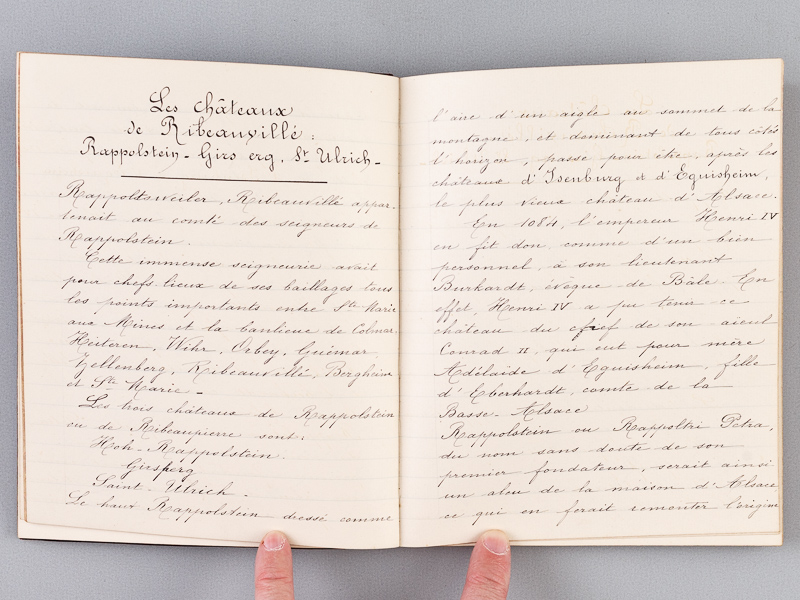 Les châteaux
de Ribeauvillé:
Rappolstein - Girs erg. St Ulrich -
Rappoltsweiler, Ribeauvillé appar-
tenait au comté des seigneurs de
Rappolstein.
Cette immense seigneurie avait
pour chefs lieux de ses baillages tous
les points importants entre Ste Marie
aux Mines et la banlieue de Colmar.
Heiteren, Wihr, Orbey, Guémar
Zellenberg, Ribeauvillé, Bergheim
et Ste Marie -
Les trois châteaux de Rappolstein
ou de Ribeaupierre sont:
Hoh - Rappolstein.
Girsperg
Saint - Ulrich -
Le haut Rappolstein dressé comme
l'aire d'un aigle au sommet de la
montagne, et dominant de tous côtés
l'horizon, passe pour être, après les
châteaux d'Isenburg et d'Eguisheim,
le plus vieux château d'Alsace.
En 1084, l'empereur Henri IV
en fit don, comme d'un bien
personnel, à son lieutenant
Burkardt, évêque de Bâle. En
effet, Henri IV a pu tenir ce
château du chef de son aïeul
Conrad II, qui eut pour mère
Adélaïde d'Eguisheim, fille
d'Eberhardt, comte de la
Basse - Alsace
Rappolstein ou Rappoltri Petra,
du nom sans doute de son
premier fondateur, serait ainsi
un aleu de la maison d'Alsace
ce qui en ferait remonter l'origine